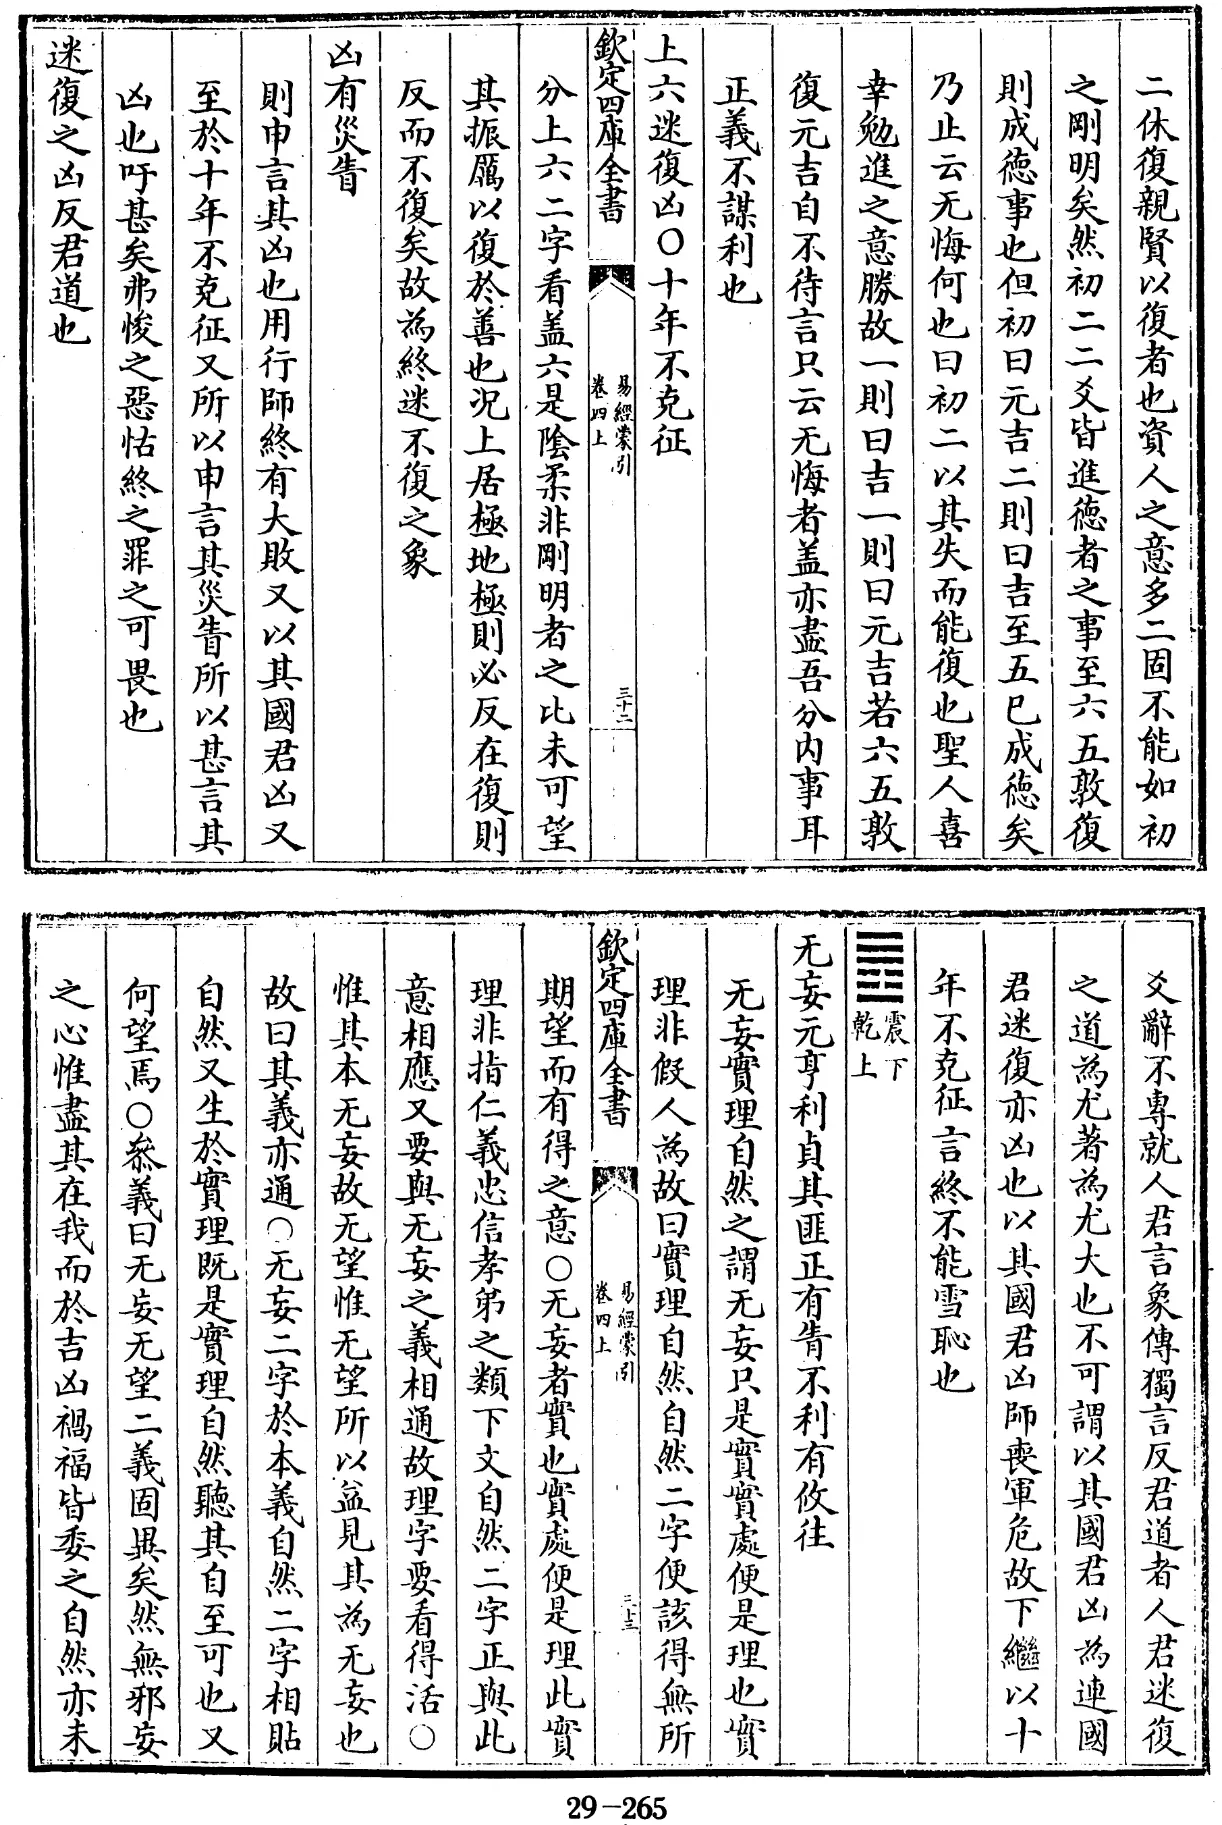 二休復親賢以復者也資人之意多二固不能如初
之剛明矣然初二二爻皆進德者之事至六五敦復
則成德事也但初曰元吉二則曰吉至五已成德矣
乃止云无悔何也曰初二以其失而能復也聖人喜
幸勉進之意勝故一則曰吉一則曰元吉若六五敦
復元吉自不待言只云无悔者蓋亦盡吾分内事耳
正義不謀利也
上六迷復凶○十年不克征
欽定四庫全書
易經蒙引
卷四上
三十二
分上六二字看蓋六是陰柔非剛明者之比未可望
其振厲以復於善也況上居極地極則必反在復則
反而不復矣故為終迷不復之象
凶有災眚
則申言其凶也用行師終有大敗又以其國君凶又
至於十年不克征又所以申言其災眚所以甚言其
凶也吁甚矣弗悛之惡怙終之罪之可畏也
迷復之凶反君道也
爻辭不專就人君言象傳獨言反君道者人君迷復
之道為尤著為尤大也不可謂以其國君凶為連國
君迷復亦凶也以其國君凶師喪軍危故下繼以十
年不克征言終不能雪恥也
䷘震下
乾上
无妄元亨利貞其匪正有眚不利有攸往
无妄實理自然之謂无妄只是實實處便是理也實
理非假人為故曰實理自然自然二字便該得無所
欽定四庫全書
易經蒙引
卷四上
三十三
期望而有得之意○无妄者實也實處便是理此實
理非指仁義忠信孝弟之類下文自然二字正與此
意相應又要與无妄之義相通故理字要看得活○
惟其本无妄故无望惟无望所以益見其為无妄也
故曰其義亦通○无妄二字於本義自然二字相貼
自然又生於實理既是實理自然聽其自至可也又
何望焉○叅義曰无妄无望二義固異矣然無邪妄
之心惟盡其在我而於吉凶禍福皆委之自然亦未
29-265